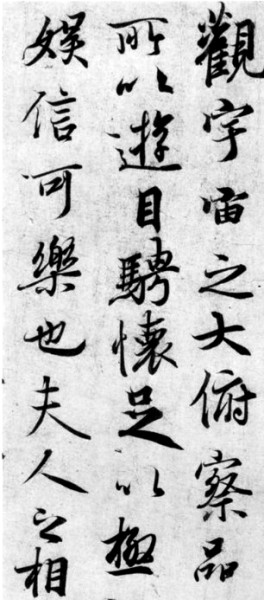 觀宇宙之大俯察品
所以遊目騁懷足以極
娱信可樂也夫人之相